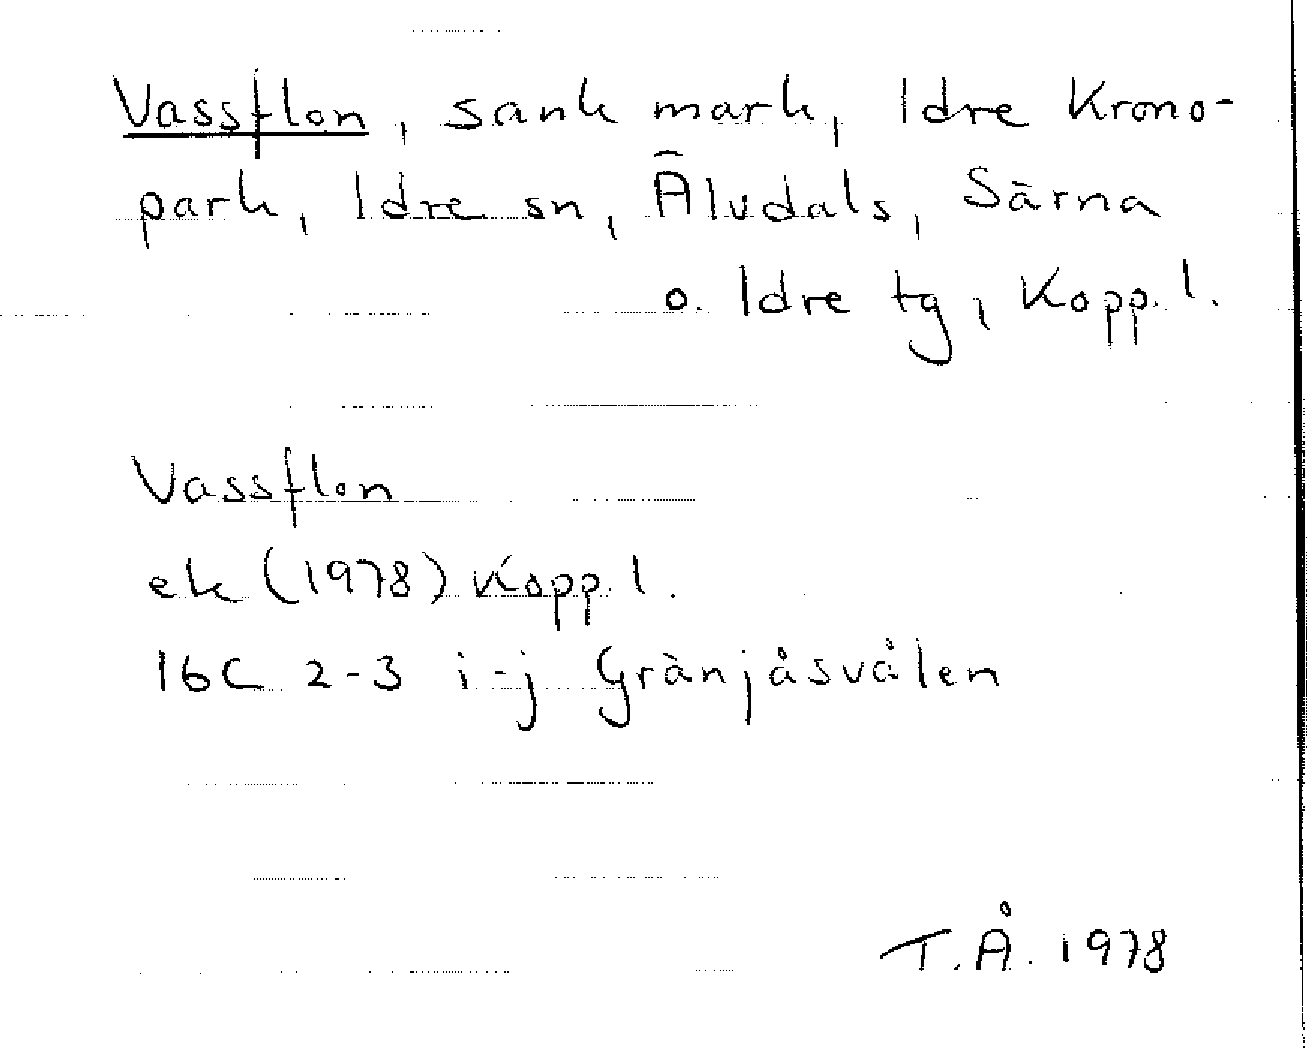 Vassflon, sank mark, Idre Krono-
park, Idre sn, Älvdals, Särna
o. Idre tg, Kopp. l.
Vassflon
ek (1978) Kopp. l.
16C 2-3 i-j Gränjåsvålen
T.Å. 1978